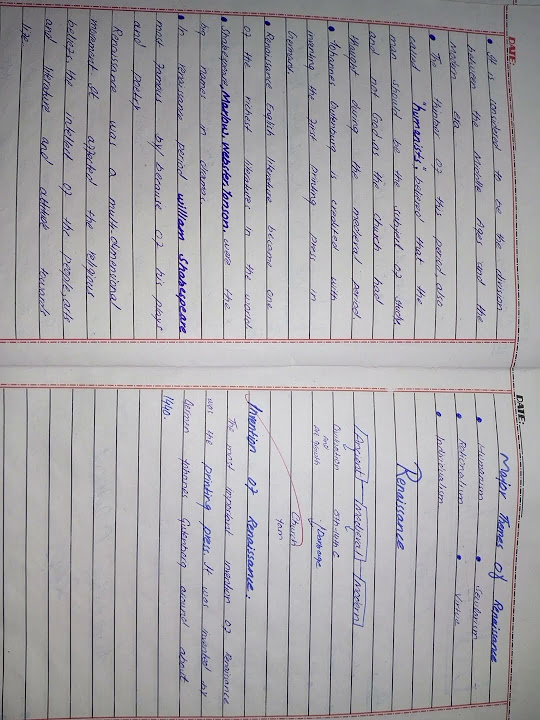 DATE:
• It is considered to be the division
between the Middle Ages and the
Modern era
• The thinker of this period also
called "humanists", believed that the
man should be the subject of study
and not God as the church had
thought during the medieval period.
• Johannes Gutenburg is credited with
inventing the first printing press in
German.
• Renaissance English literature become one
of the richest literatures in the world
• Shakespeare, Marlow, webster, Jonson. were the
big names in dramas.
• In renaissance period william Shakespeare
most famous by because of his plays
and poetry
Renaissance was a multi-dimensional
movement. It affected the religious
beliefs, the intellect of the people, arts
and literature and attitude towards
life.
DATE:
Major Themes of Renaissance
• Humanism • Secularism
• Rationalism • Virtue
• Individualism
Renaissance
Ancient Medieval Modern
5th-14th C
Church
Invention of Renaissance.
The most important invention of Renaissance
was the printing press. It was invented by
German Johanes Gutenberg around about
1440.